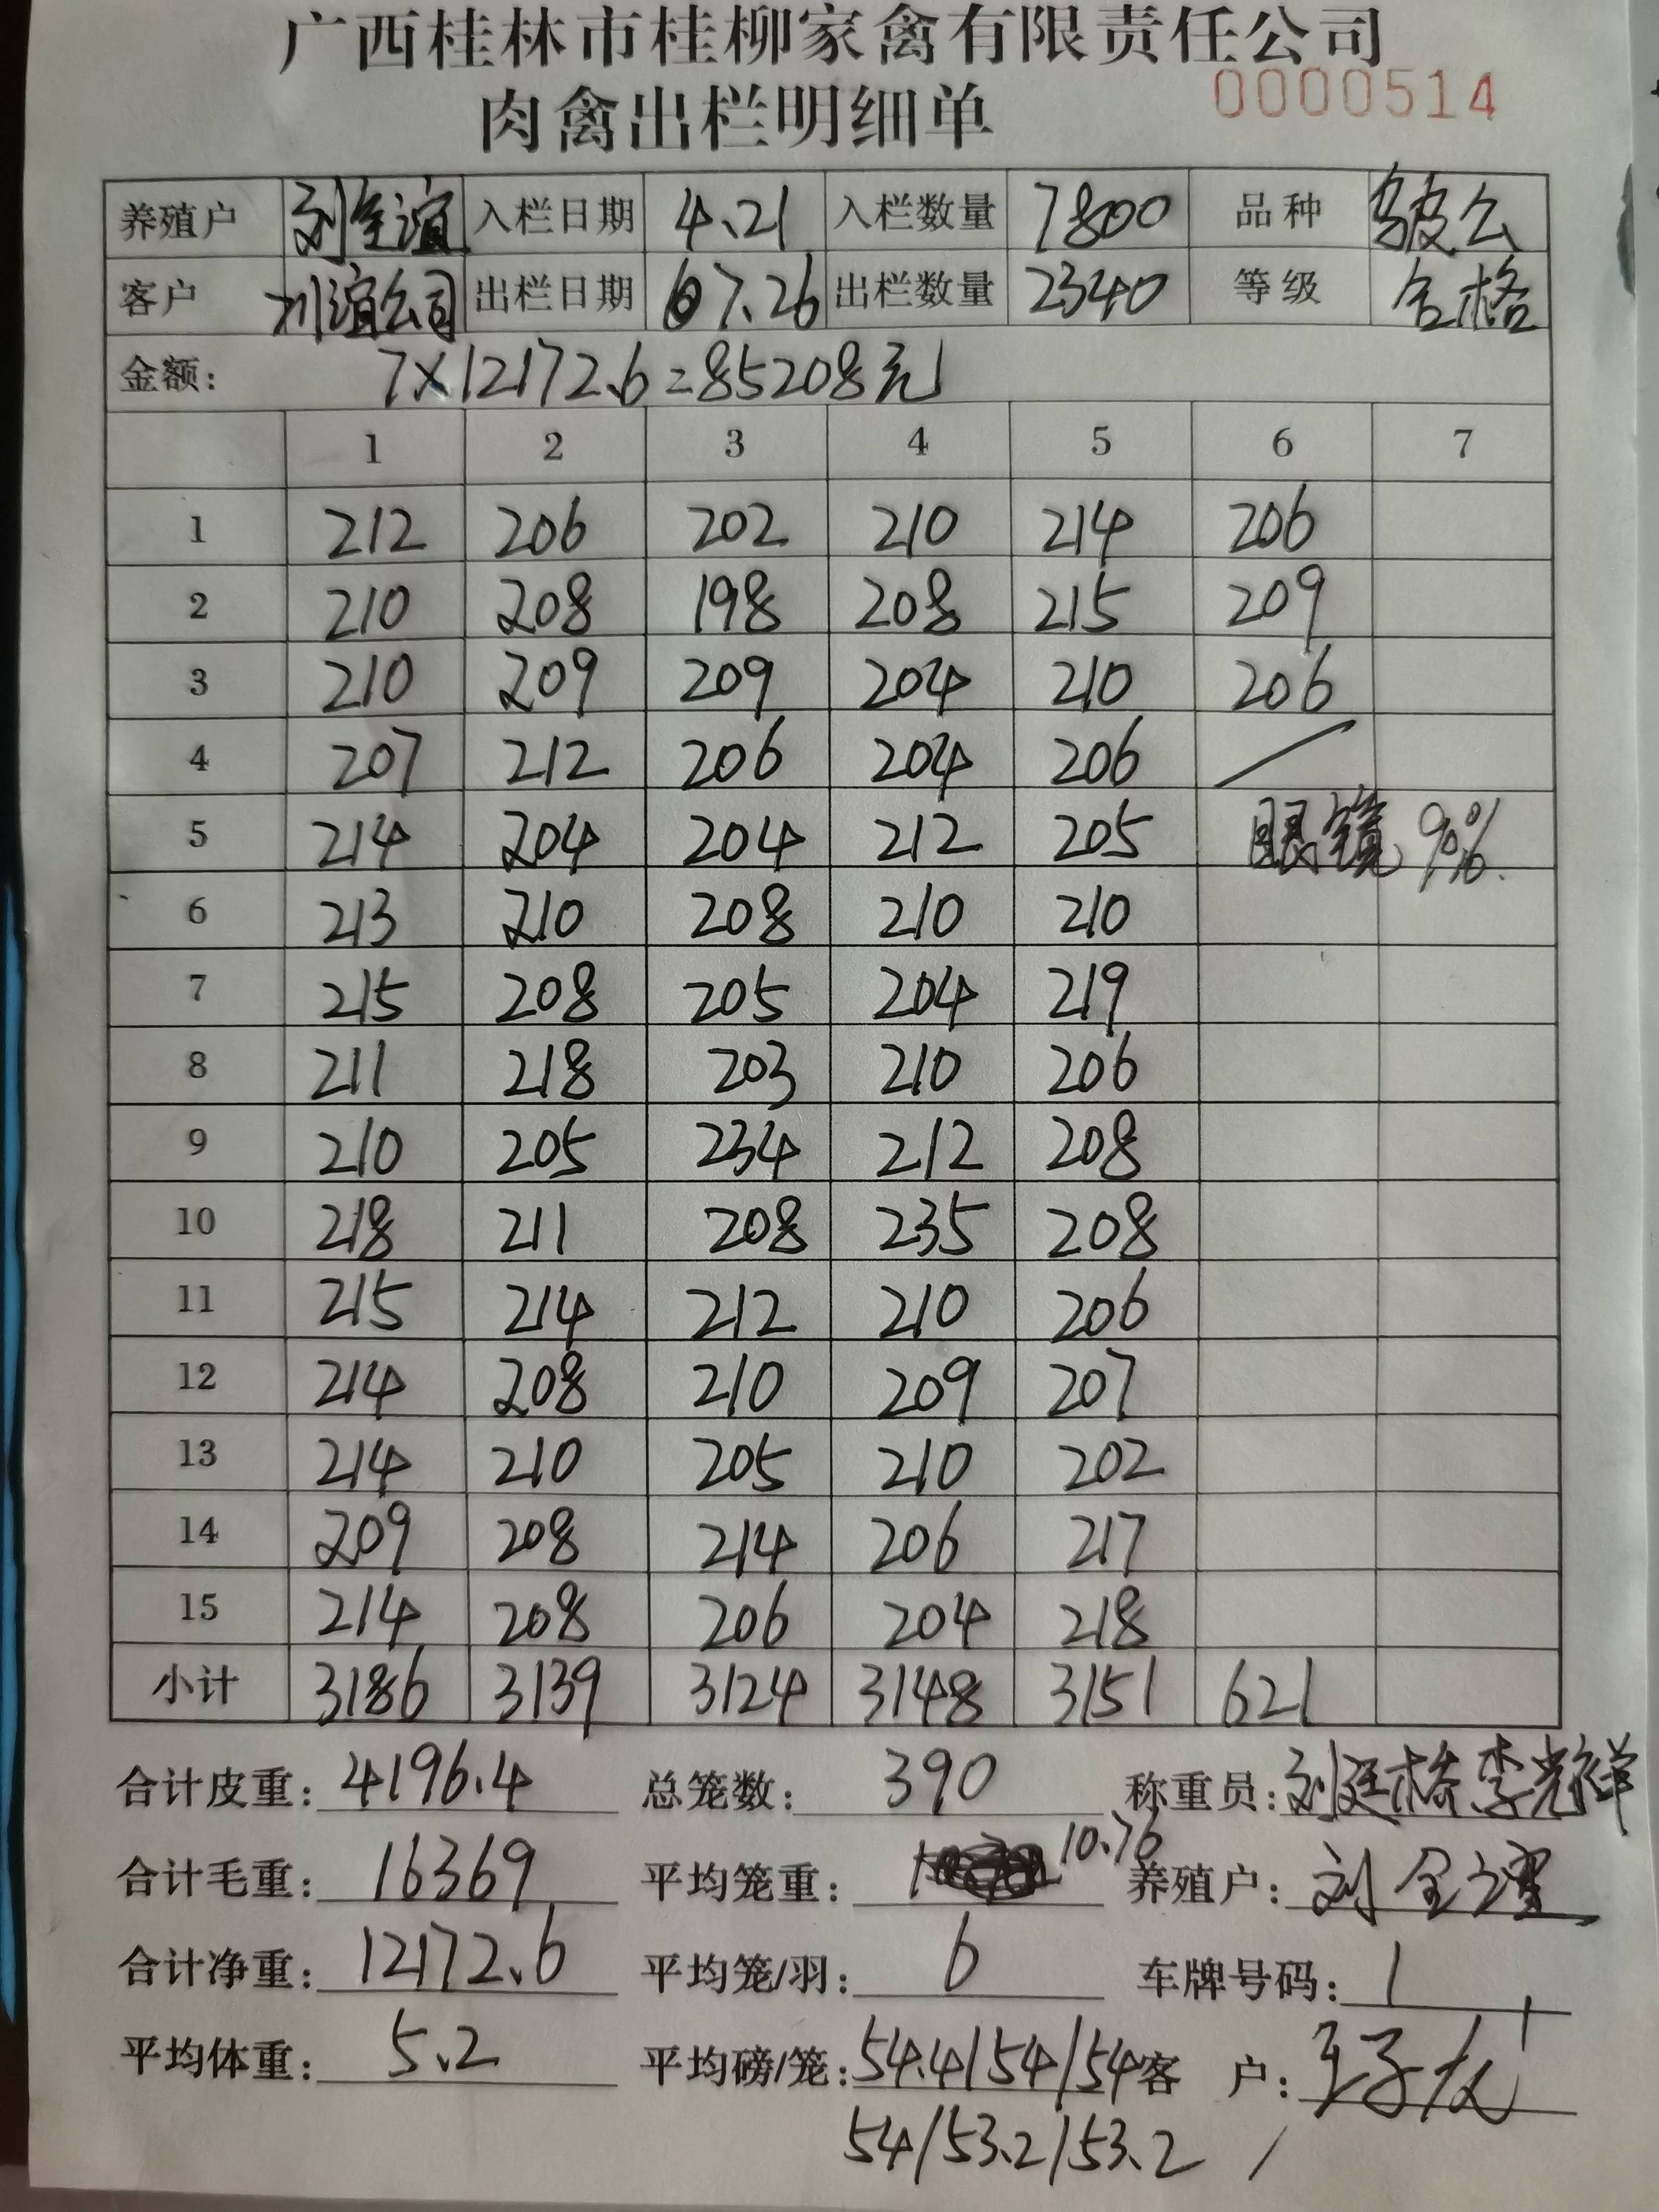 广西桂林市桂柳家禽有限责任公司
肉禽出栏明细单 0000514
养殖户 刘全谊 入栏日期 4.21 入栏数量 7800 品种
客户 川谊公司 出栏日期 7.26 出栏数量 2340 等级 合格
金额: 7×12172.6=85208元
1 2 3 4 5 6 7
1 212 206 202 210 214 206
2 210 208 198 208 215 209
3 210 209 209 204 210 206
4 207 212 206 204 206 /
5 214 204 204 212 205 眼镜 90%.
6 213 210 208 210 210
7 215 208 205 204 219
8 211 218 203 210 206
9 210 205 234 212 208
10 218 211 208 235 208
11 215 214 212 210 206
12 214 208 210 209 207
13 214 210 205 210 202
14 209 208 214 206 217
15 214 208 206 204 218
小计 3186 3139 3124 3148 3151 621
合计皮重: 4196.4 总笼数: 390 称重员: 李光祥
合计毛重: 16369 平均笼重: 10.76 养殖户: 刘全谊
合计净重: 12172.6 平均笼/羽: 6 车牌号码: 1
平均体重: 5.2 平均磅/笼: 54.4/54/54 客 户:
54/53.2/53.2 /